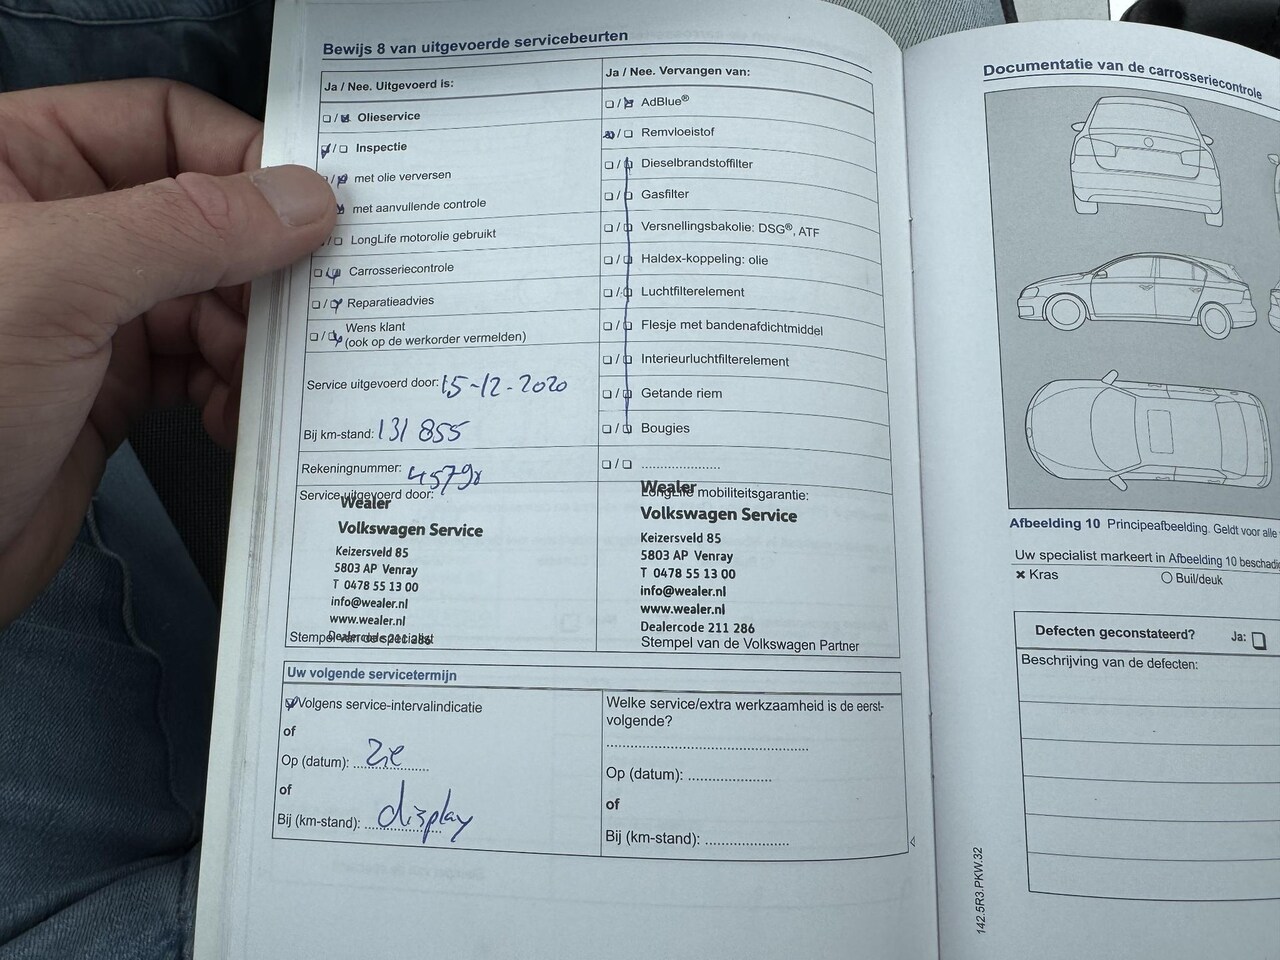 Bewijs 8 van uitgevoerde servicebeurten
Ja / Nee. Uitgevoerd is:
Olieservice
Inspectie
met olie verversen
met aanvullende controle
LongLife motorolie gebruikt
Carrosseriecontrole
Reparatieadvies
Wens klant
(ook op de werkorder vermelden)
Service uitgevoerd door: 15-12-2020
Bij km-stand: 131 855
Rekeningnummer:
Service uitgevoerd door:
Wealer
Volkswagen Service
Keizersveld 85
5803 AP Venray
T 0478 55 13 00
info@wealer.nl
www.wealer.nl
Dealercode 211 286
Stempel van de specialist
Ja / Nee. Vervangen van:
AdBlue®
Remvloeistof
Dieselbrandstoffilter
Gasfilter
Versnellingsbakolie: DSG®, ATF
Haldex-koppeling: olie
Luchtfilterelement
Flesje met bandenafdichtmiddel
Interieurluchtfilterelement
Getande riem
Bougies
....................
LongLife mobiliteitsgarantie:
Wealer
Volkswagen Service
Keizersveld 85
5803 AP Venray
T 0478 55 13 00
info@wealer.nl
www.wealer.nl
Dealercode 211 286
Stempel van de Volkswagen Partner
Uw volgende servicetermijn
Volgens service-intervalindicatie
of
Op (datum): zie
of
Bij (km-stand): display
Welke service/extra werkzaamheid is de eerst-
volgende?
Op (datum): ....................
of
Bij (km-stand): ....................
Documentatie van de carrosseriecontrole
Afbeelding 10 Principeafbeelding. Geldt voor alle
Uw specialist markeert in Afbeelding 10
× Kras
○ Buil/deuk
Defecten geconstateerd? Ja:
Beschrijving van de defecten:
142.5R3.PKW.32